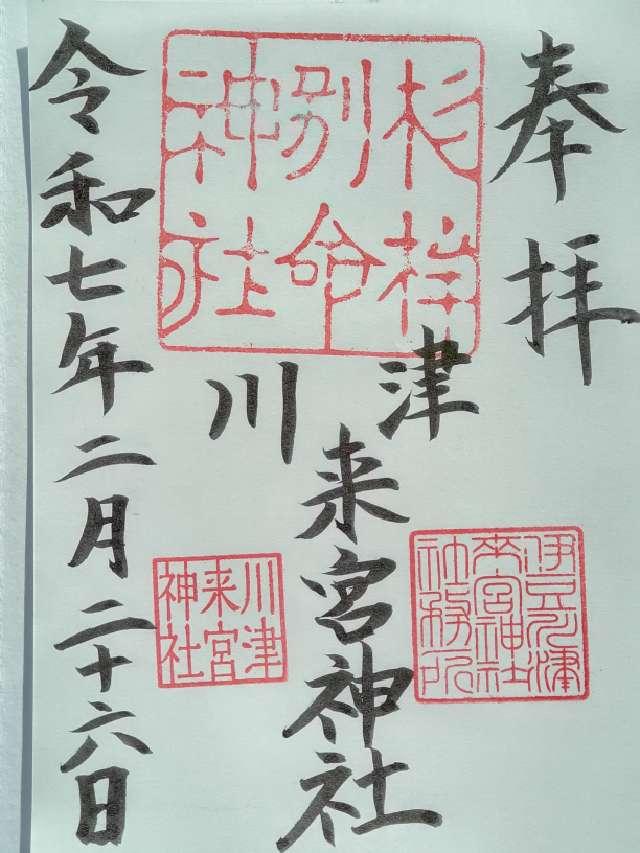 奉拝
杉桙
別命
神社
川津
来宮神社
伊豆川津
来宮神社
社務所
川津
来宮
神社
令和七年二月二十六日